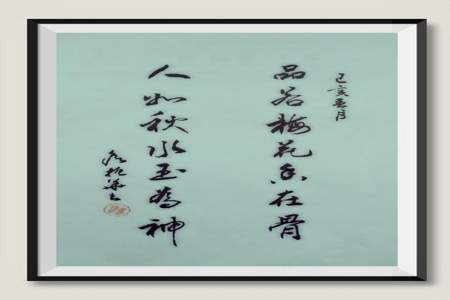 己亥春月
品若梅花香在骨
人如秋水玉為神